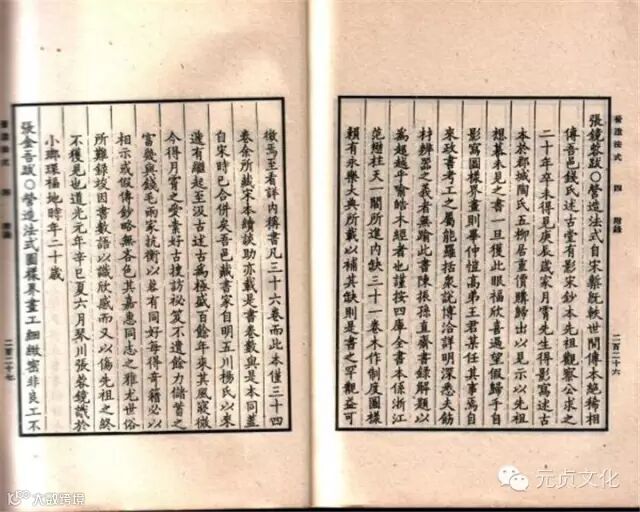 營造法式 四 附錄
二百二十六
張鏡蓉跋○營造法式自宋槧既軼世間傳本絕稀相
傳吾邑錢氏述古堂有影宋鈔本先祖觀察公求之
二十年卒未得見庚辰歲家月霄先生得影寫述古
本於郡城陶氏五柳居重價購歸出以見示以先祖
想慕未見之書一旦獲此眼福欣喜過望假歸手自
影寫圖樣界畫則畢仲愷高弟王君某任其事焉自
來政書考工之屬能羅括衆說博洽詳明深悉夫飭
材辨器之義者無踰此書陳振孫直齋書錄解題以
為超越乎喻皓木經者也謹按四庫全書本係浙江
范懋柱天一閣所進內缺三十一卷木作制度圖樣
賴有永樂大典所載以補其缺則是書之罕覯益可
徵焉至看詳內稱書凡三十六卷而此本僅三十四
卷余所藏宋本續談助亦載是書卷數與是本同蓋
自宋時已合併矣吾邑藏書家自明五川楊氏以來
遞有繼起至汲古述古為極盛百餘年來其風寖微
今得月霄之愛素好古搜訪秘笈不遺餘力儲蓄之
富幾與錢毛兩家抗衡以蓉有同好每得奇籍必以
相示或假傳鈔略無吝色其嘉惠同志之雅尤世俗
所難錄竣因書數語以識欣感而又以傷先祖之終
不獲見也道光元年辛巳夏六月琴川張蓉鏡識於
小嫏嬛福地時年二十歲
張金吾跋○營造法式圖樣界畫工細緻密非良工不
營造法式 四 附錄
二百二十七
元贞文化
大数跨境